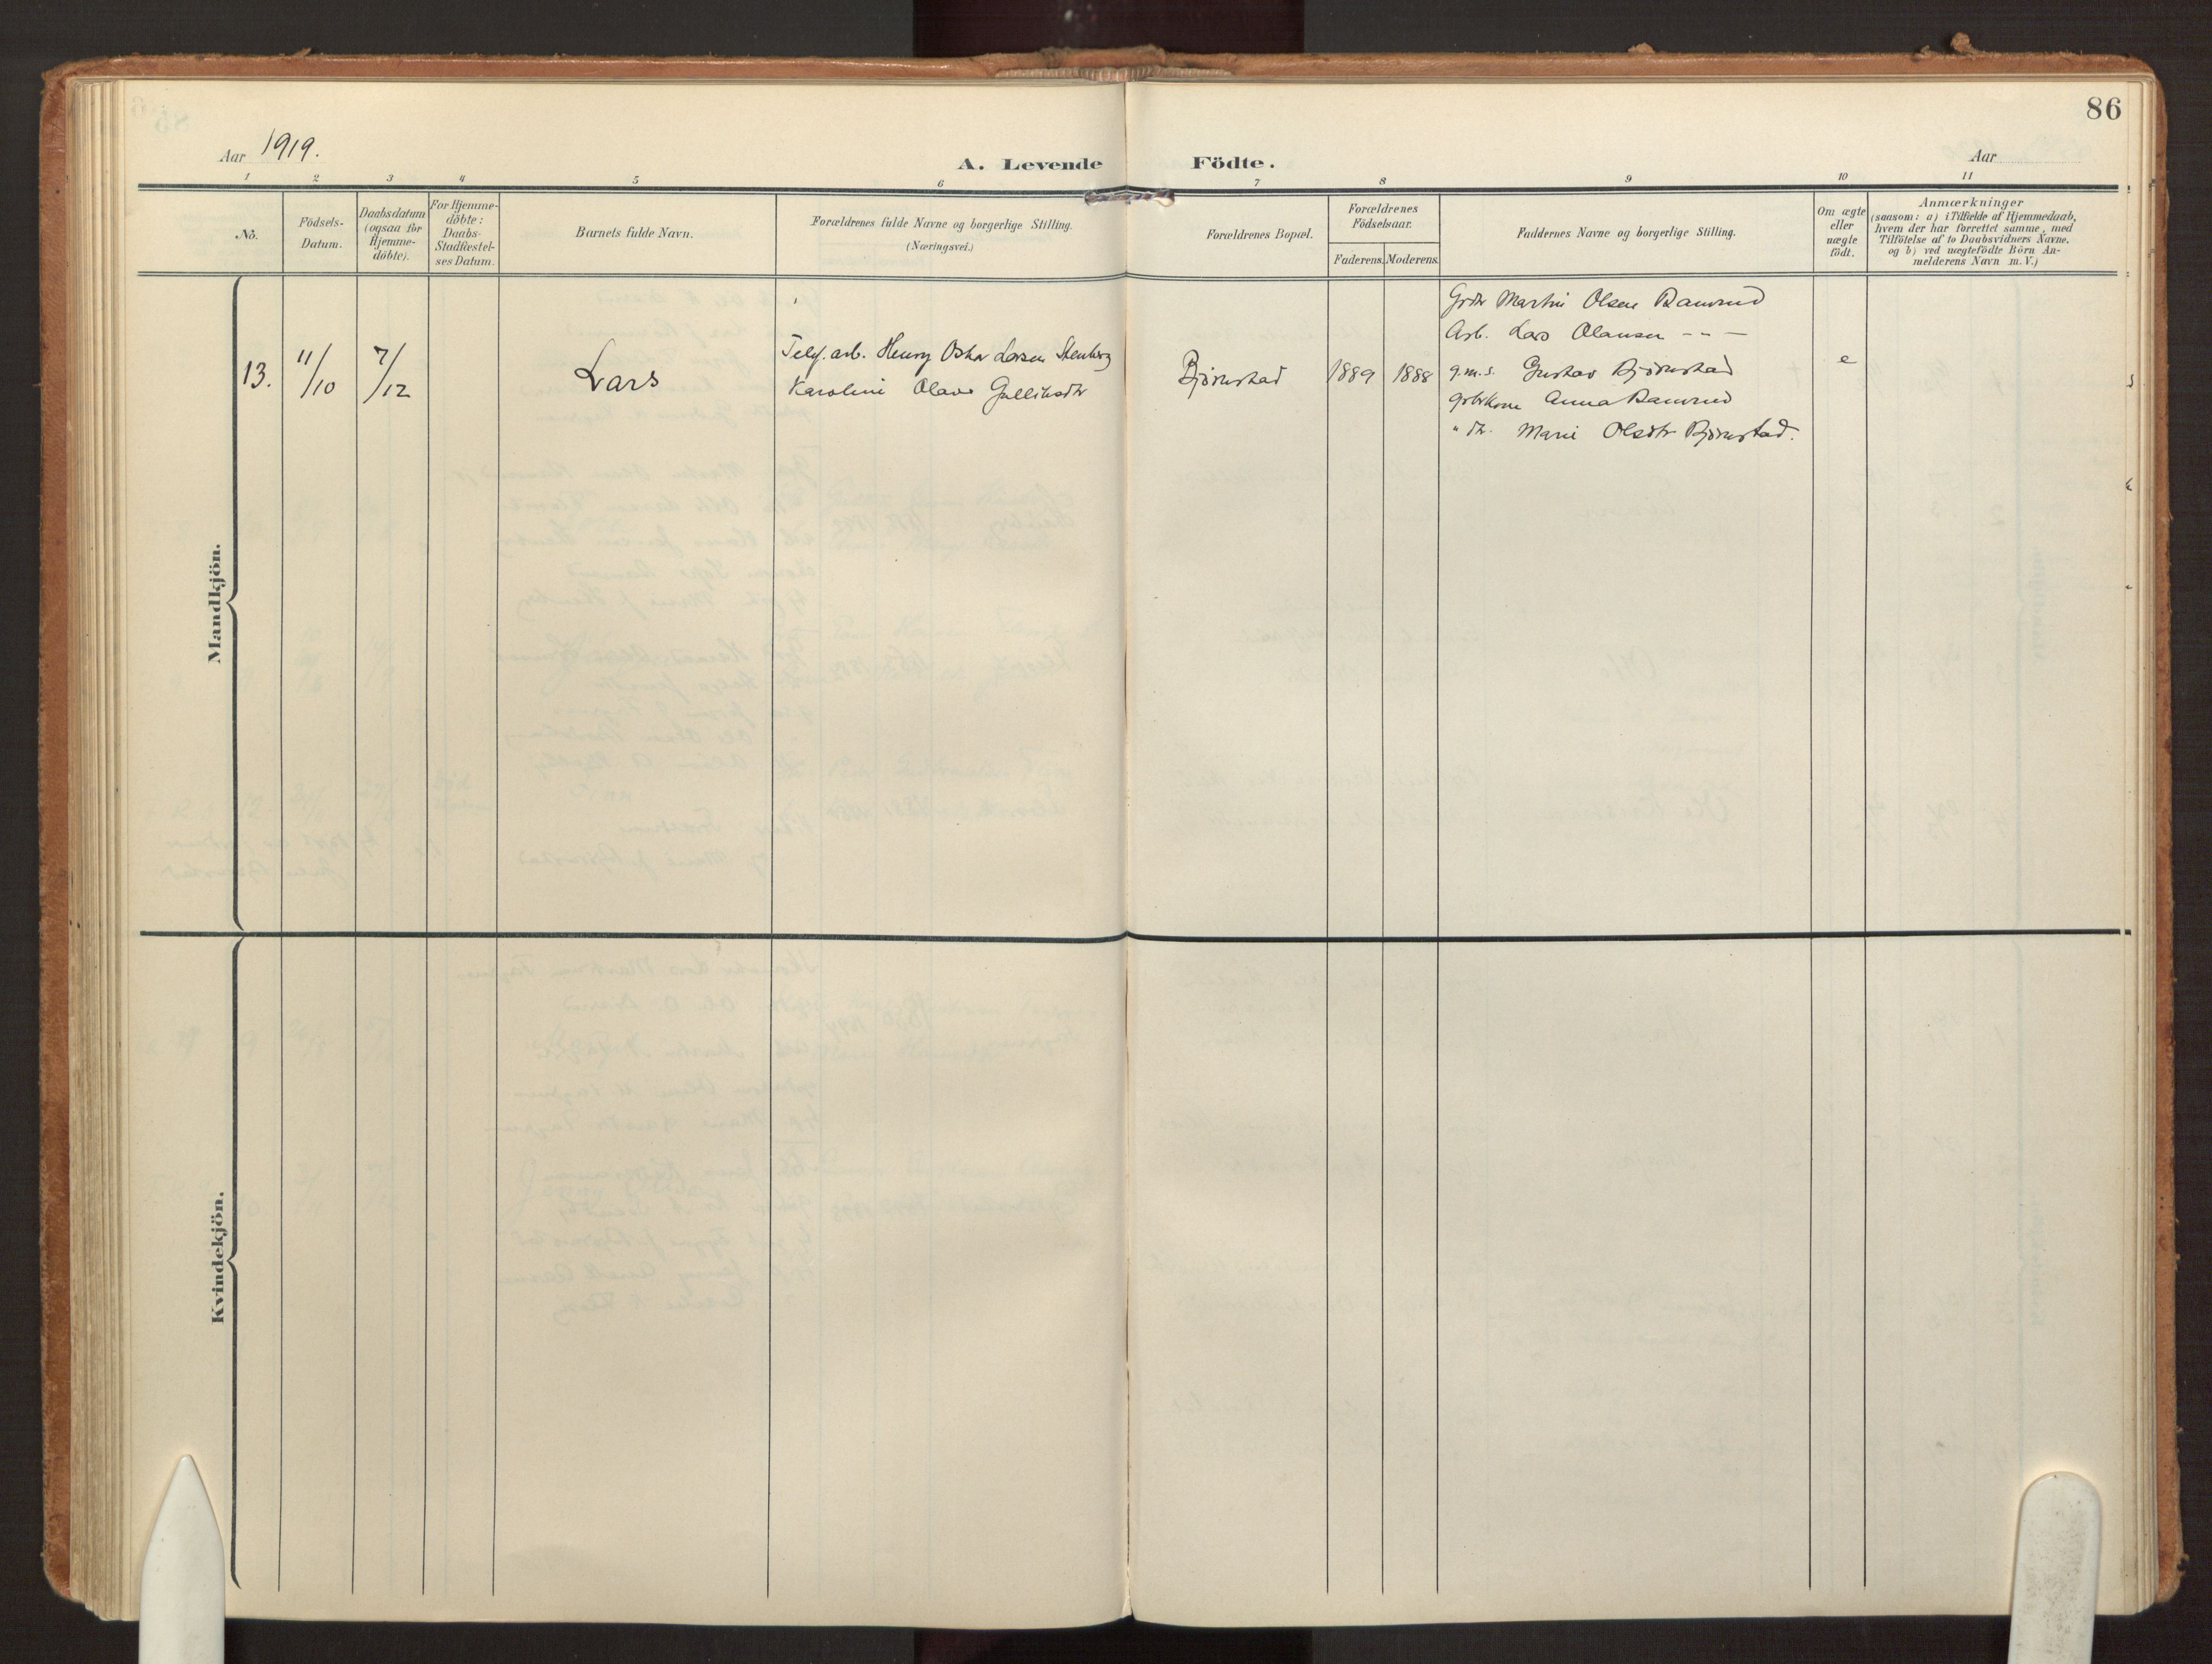 86
Aar 1919.
A. Levende Födte.
Aar
1 2 3 4 5 6 7 8 9 10 11
Nö.
Födsels-
Datum.
Daabsdatum
(ogsaa for
Hjemme-
döbte).
For Hjemme-
döbte:
Daabs-
Stadfæstel-
ses Datum.
Barnets fulde Navn.
Forældrenes fulde Navne og borgerlige Stilling.
(Næringsvei.)
Forældrenes Bopæl.
Forældrenes
Födselsaar.
Faderens. Moderens.
Faddernes Navne og borgerlige Stilling.
Om ægte
eller
uægte
födt.
Anmærkninger
(saasom: a) i Tilfælde af Hjemmedaab,
hvem der har forrettet samme, med
Tilföielse af to Daabsvidners Navne.
og b) ved uægtefödte Börn An-
melderens Navn m. V.)
Mandkjön.
13.
11/10
7/12
Lars
Telef. arb. Henry Oskar Larsen Stenberg
Karoline Olava Gulliksdtr
Bjørnstad
1889
1888
Grdbr Martin Olsen Ramsrud
Arb. Lars Olausen - - -
g.m.s. Gustav Bjørnstad
grbrkone Anna Ramsrud
" dtr. Marie Olsdtr Bjørnstad.
e
Kvindekjön.